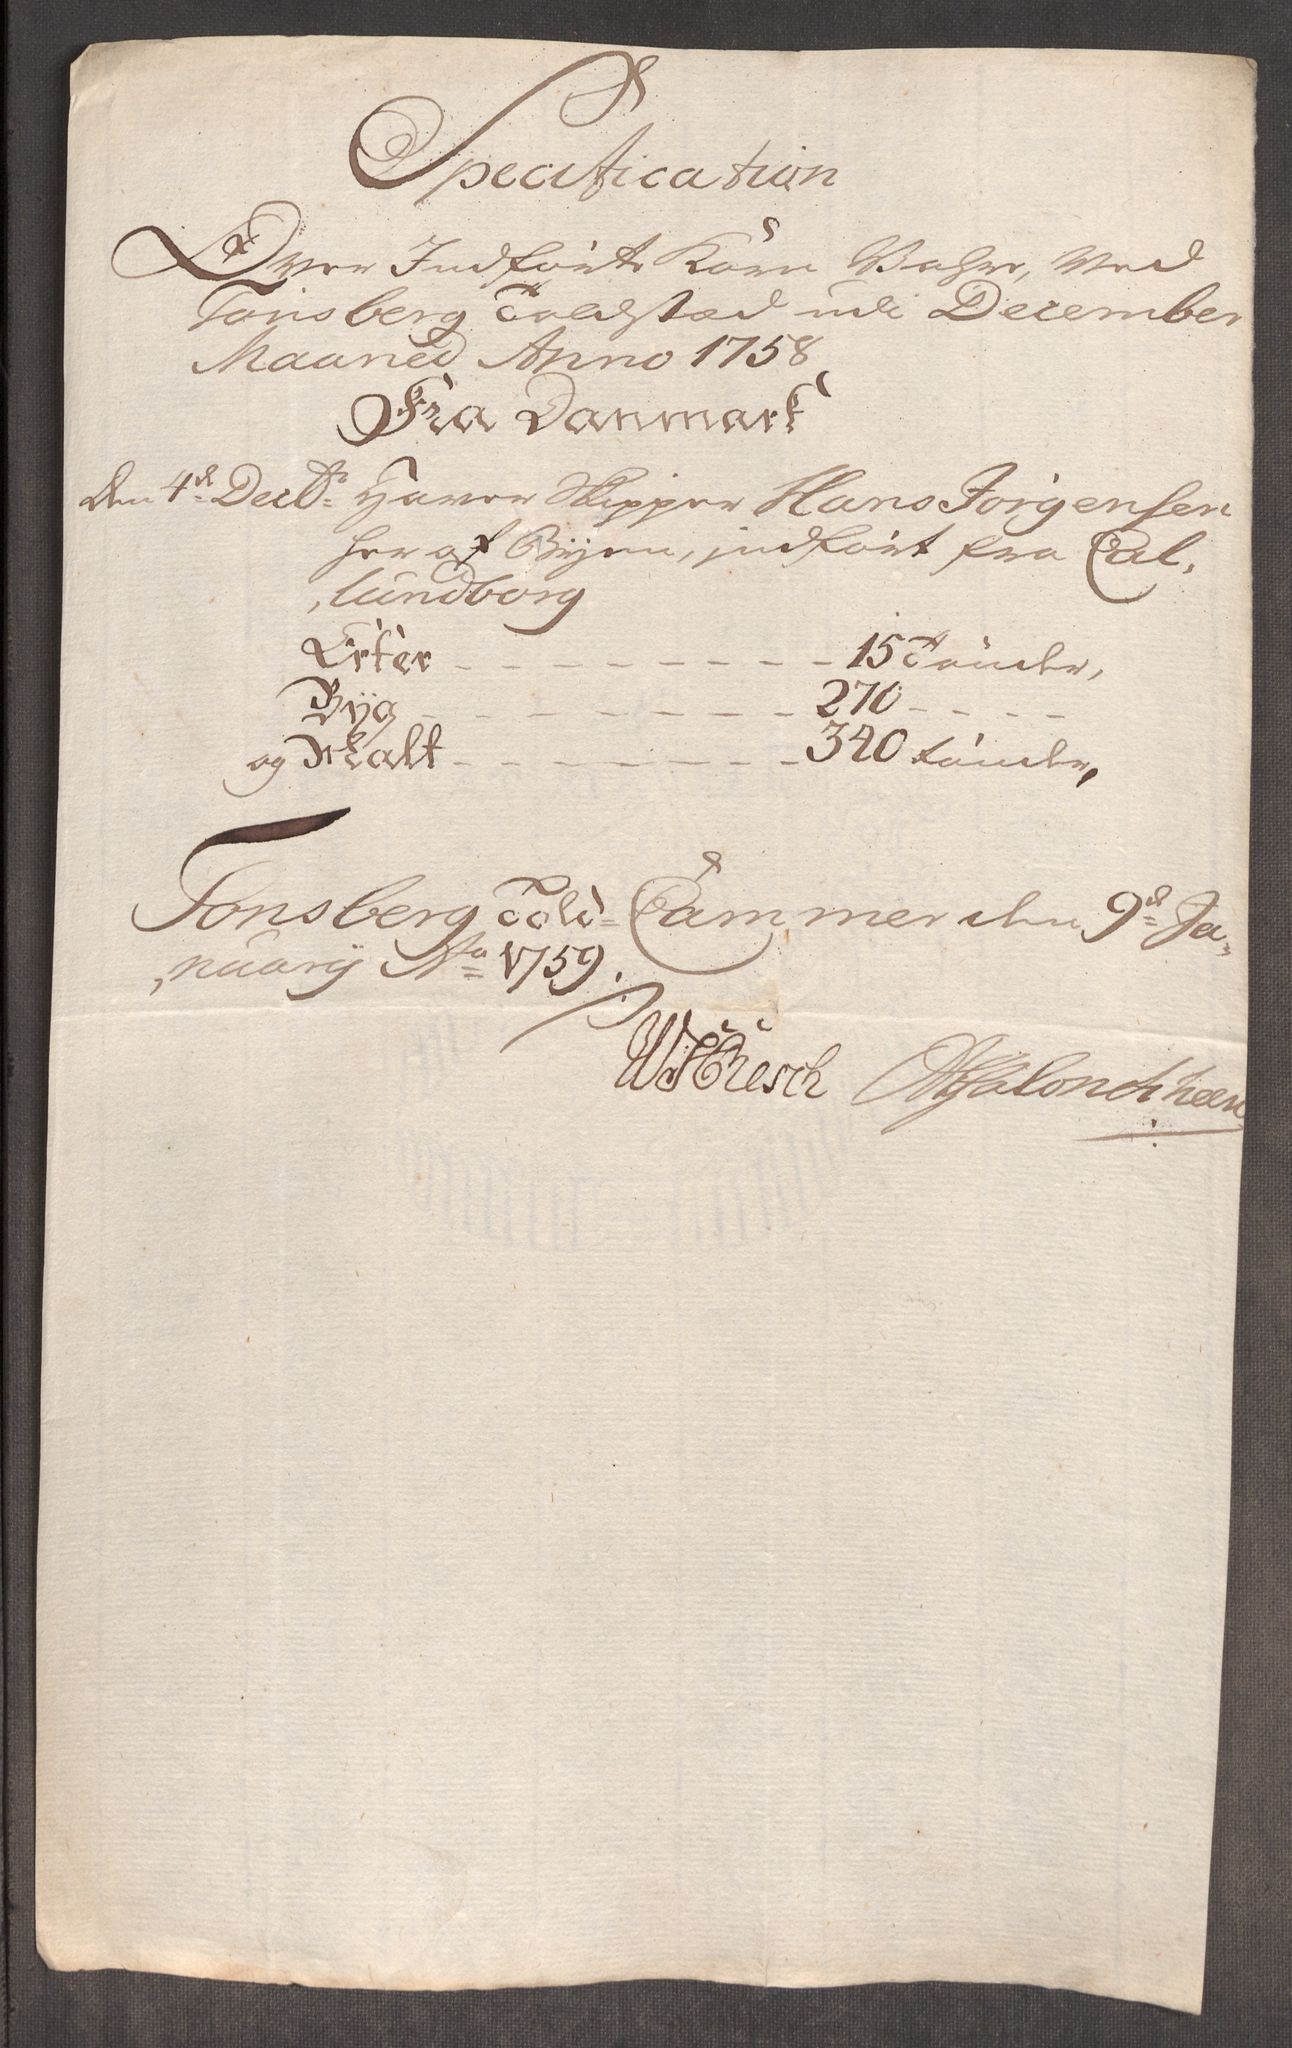 Specification
Over Indförte Korn Vahre, ved
Tönsberg Toldstæd udi December
Maaned Anno 1758
Fra Danmark
den 4de Decbr Haver Skipper Hans Jörgensen
her af Byen, indfört fra Cal,
,lundborg
Erter - - - - - - - - - 15 Tönder,
Byg - - - - - - - - - 270 - - - -
og Malt - - - - - - - - 340 tönder,
Tonsberg Told-Cammer den 9de Ja-
,nuary Ao 1759.
Resch